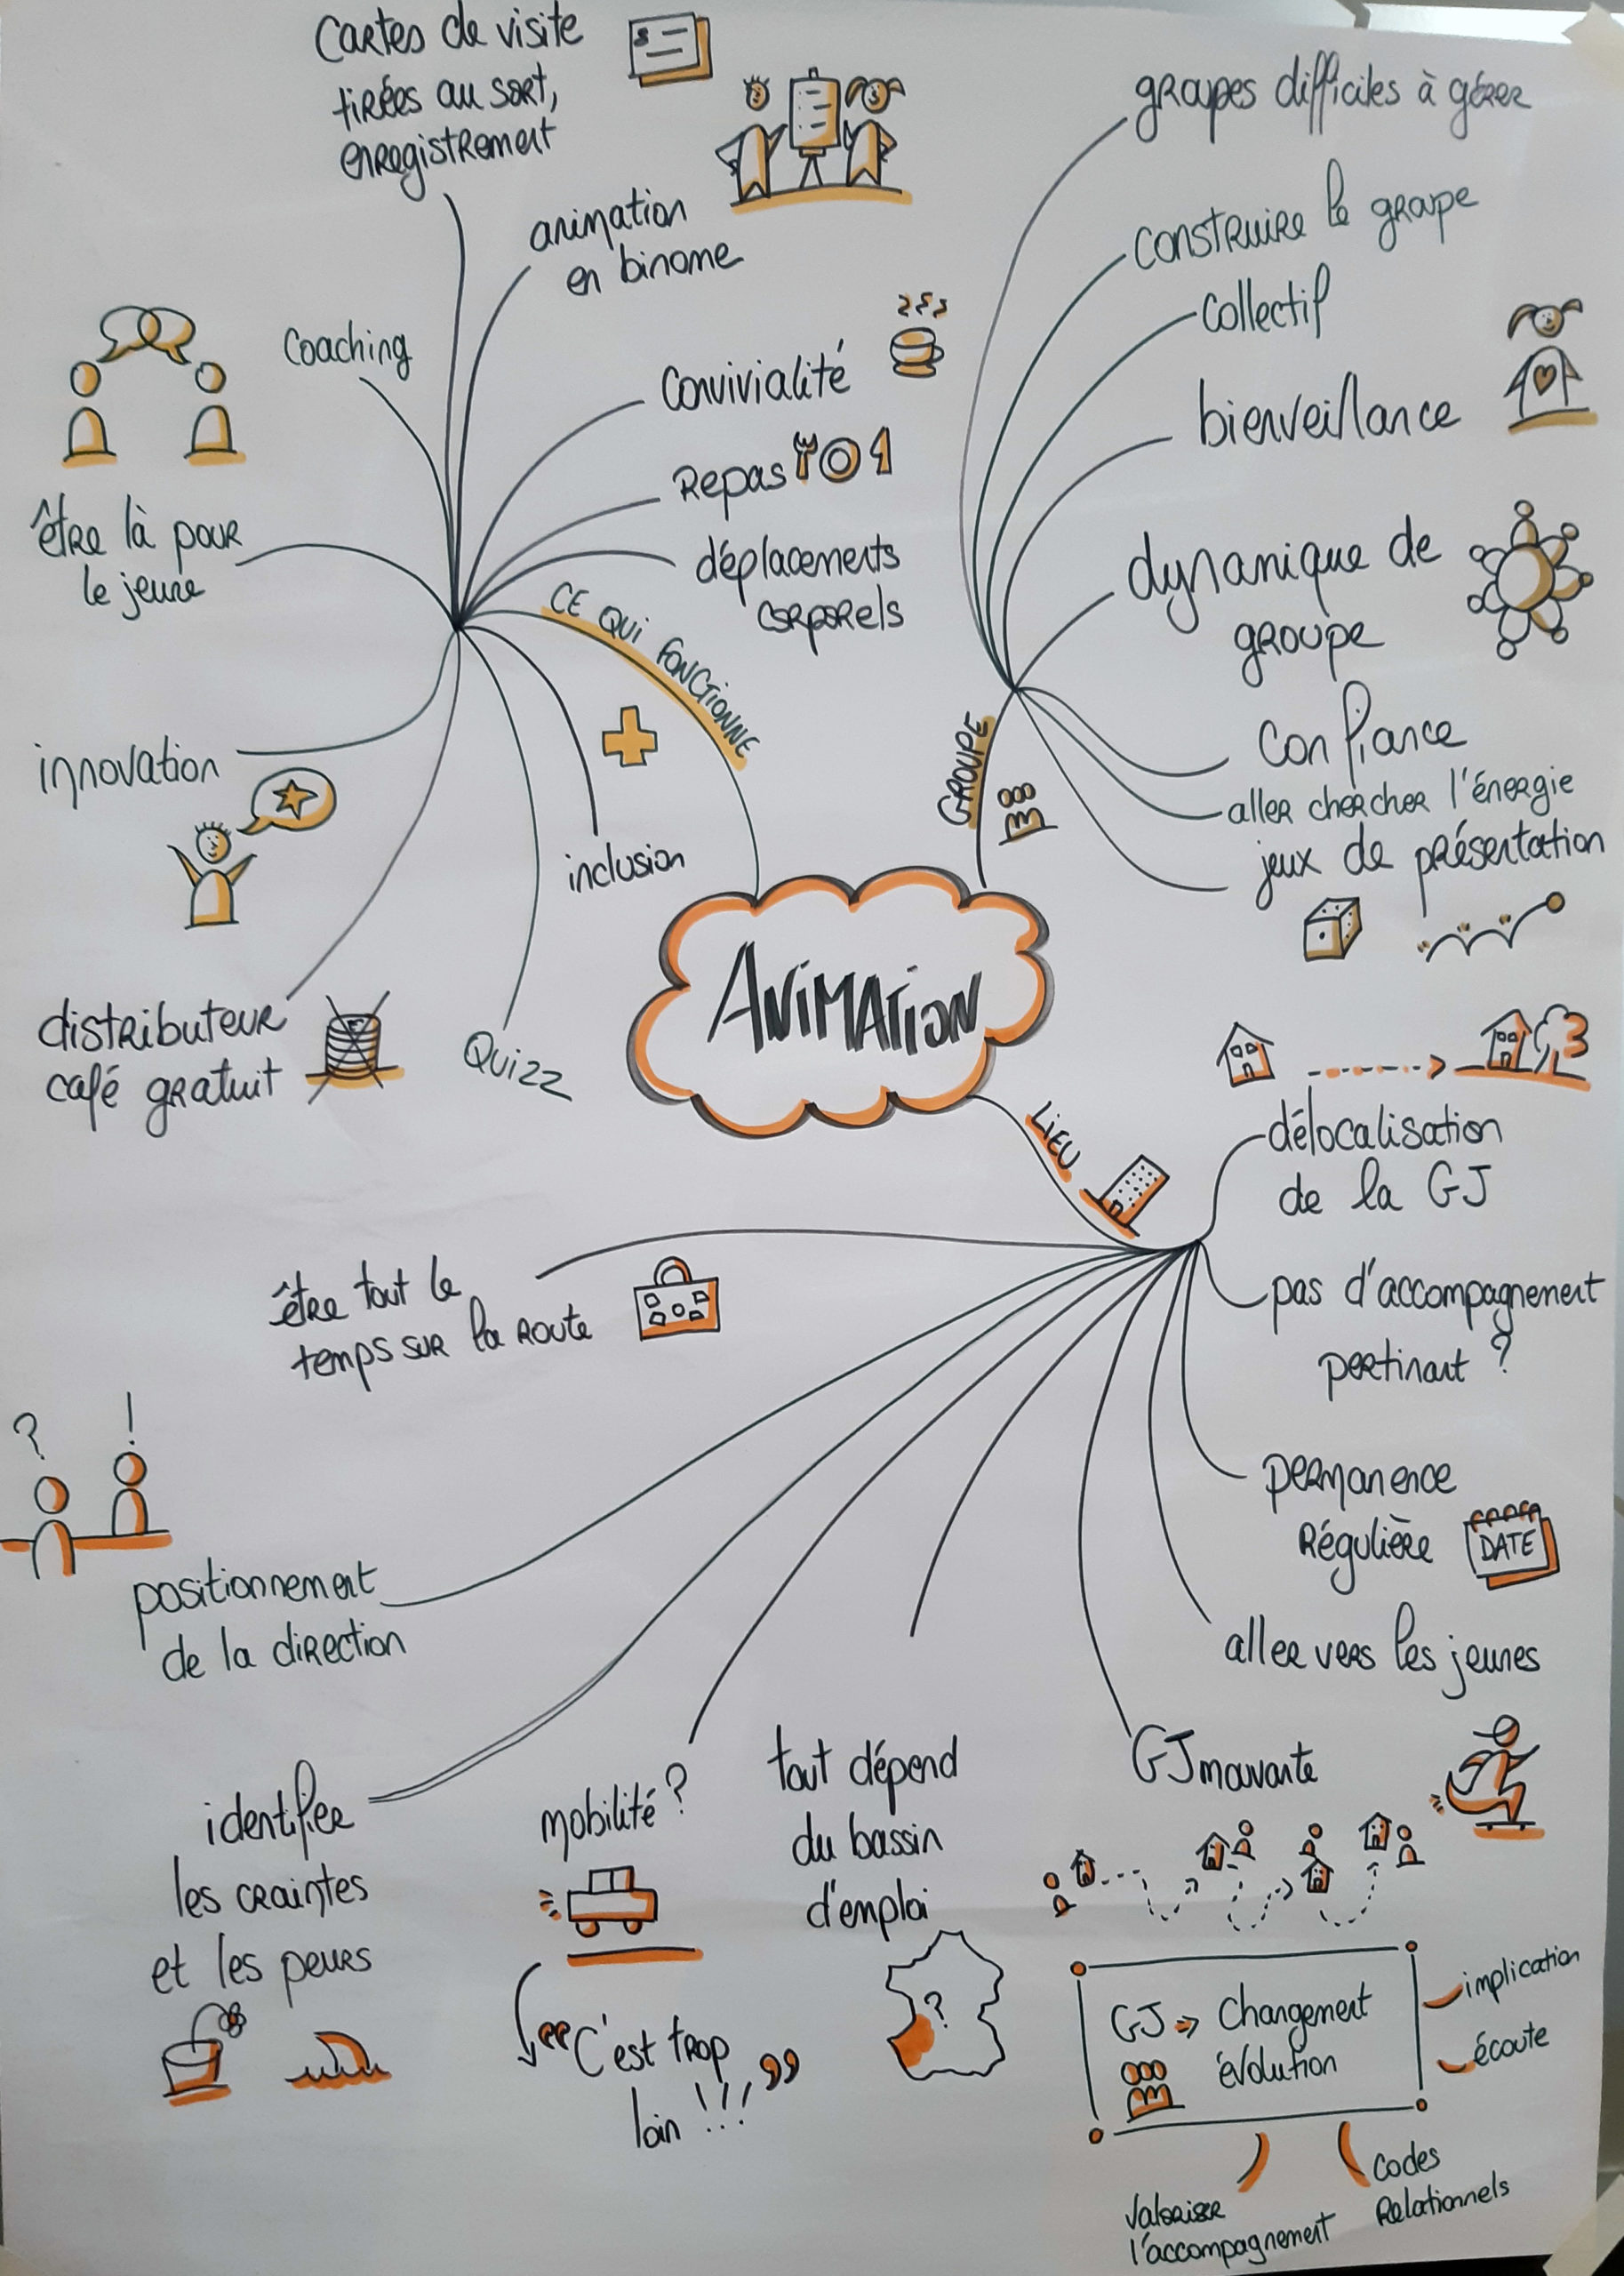 Cartes de visite
tirées au sort,
enregistrement
animation
en binome
coaching
convivialité
Repas
déplacements
corporels
être là pour
le jeune
CE QUI FONCTIONNE
innovation
inclusion
distributeur
café gratuit
Quizz
groupes difficiles à gérer
construire le groupe
collectif
bienveillance
dynamique de
groupe
GROUPE
confiance
aller chercher l'énergie
jeux de présentation
ANIMATION
LIEU
délocalisation
de la GJ
pas d'accompagnement
pertinant ?
permanence
Régulière
DATE
aller vers les jeunes
GJ mouvante
tout dépend
du bassin
d'emploi
?
mobilité ?
“C'est trop
loin !!!”
identifier
les craintes
et les peurs
? !
positionnement
de la direction
être tout le
temps sur la route
GJ => Changement
évolution
implication
écoute
Codes
Relationnels
Valoriser
l'accompagnement